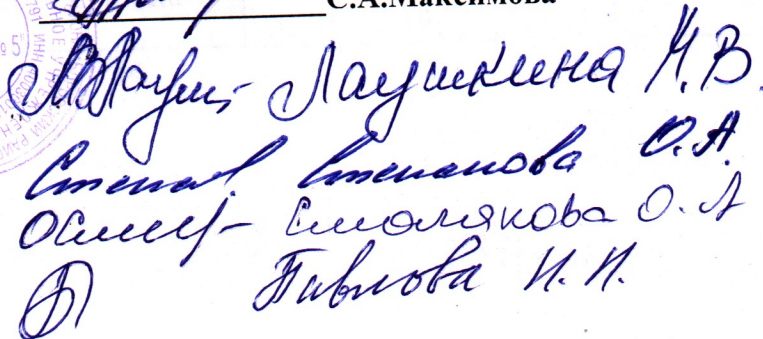 С.А.Максимова
Лаушкина М.В.
Степанова О.А.
Смолякова О.А
Павлова Н.Н.